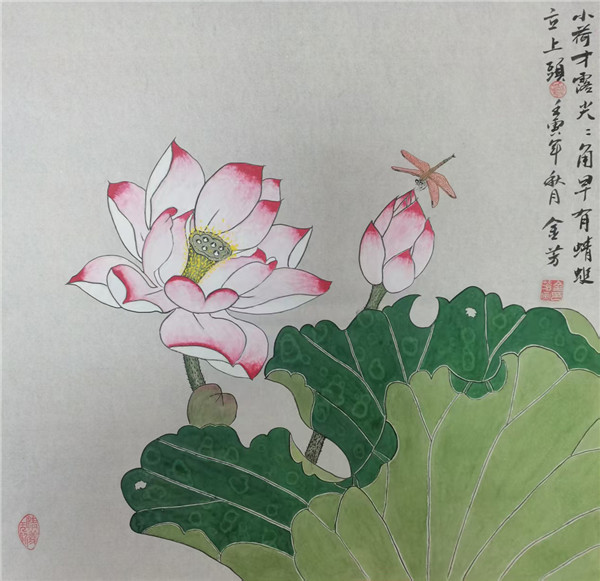 小荷才露尖〻角早有蜻蜓
立上頭 壬寅年秋月 金芳